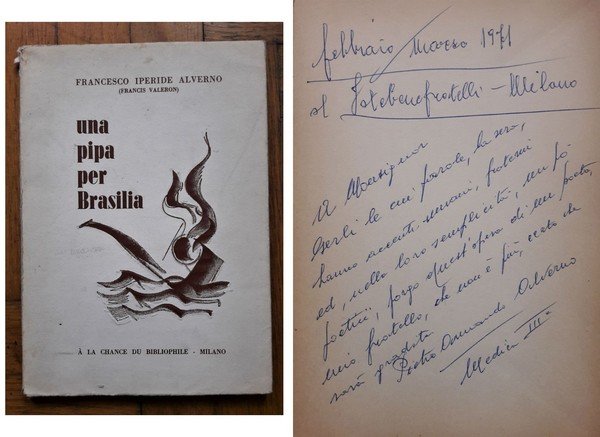 FRANCESCO IPERIDE ALVERNO
(FRANCIS VALERON)
una
pipa
per
Brasilia
À LA CHANCE DU BIBLIOPHILE - MILANO
febbraio / marzo 1971
al Fatebenefratelli - Milano
A Monsignor
Gerli le cui parole, la sera,
hanno accenti umani, fraterni
ed, nella loro semplicità, un pò
poetici, porgo quest'opera di un poeta,
mio fratello, che non è più, certo che
sarà gradita
Pietro Armando Alverno
Medicina III^a